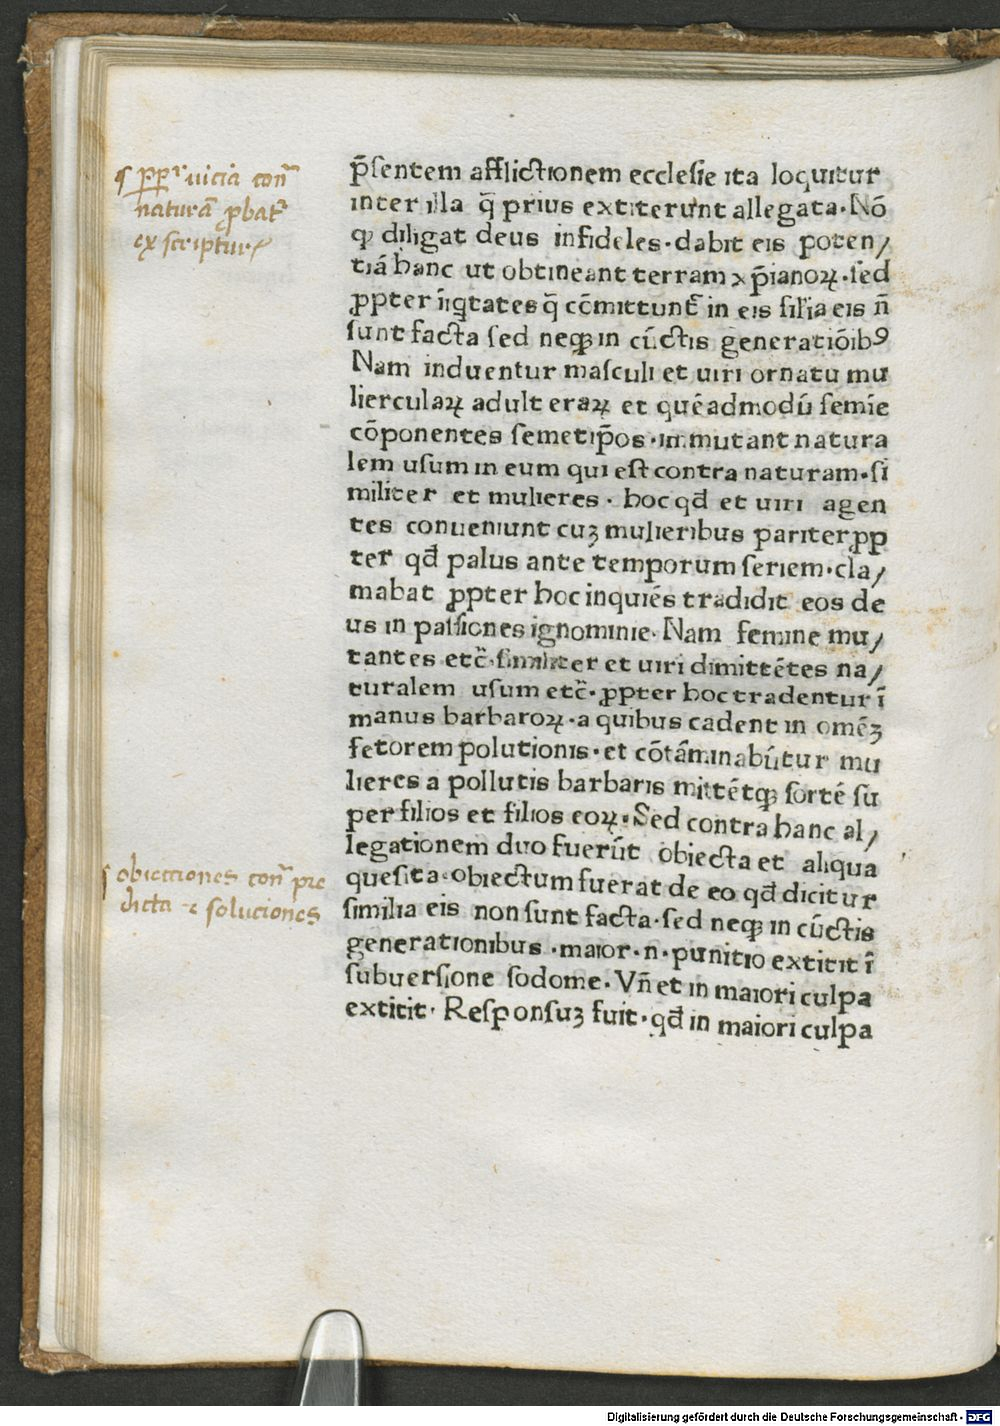 p̄sentem afflictionem ecclesie ita loquitur
inter illa q̄ prius extiterunt allegata·Nō
ꝙ diligat deus infideles·dabit eis poten/
tiā hanc ut obtineant terram xp̄ianoꝝ·sed
ꝓpter īiqtates q̄ cōmittunt̄ in eis silīa eis n̄
sunt facta sed neqꝫ in cūctis generatiōibꝰ
Nam induentur masculi et uiri ornatu mu
liercularꝝ adult eraꝝ et quēadmodū femīe
cōponentes semetip̄os·inmutant natura
lem usum in eum qui est contra naturam·si
militer et mulieres·hoc qđ et uiri agen
tes conueniunt cuꝫ mulieribus pariter ꝓp
ter qđ palus ante temporum seriem·cla/
mabat ꝓpter hoc inquiēs tradidit eos de
us in passiones ignominie·Nam femine mu/
tantes etc̄·similiter et uiri dimittētes na/
turalem usum etc̄·ꝓpter hoc tradentur ī
manus barbaroꝝ·a quibus cadent in omēꝫ
fetorem polutionis·et cōtāminabūtur mu
lieres a pollutis barbaris mittētqꝫ sortē su
per filios et filios eoꝝ·Sed contra hanc al/
legationem duo fuerūt obiecta et aliqua
quesita·obiectum fuerat de eo qđ dicitur
similia eis non sunt facta·sed neqꝫ in cūctis
generationibus·maior·n·punitio extitit ī
subuersione sodome·Vn̄ et in maiori culpa
extitit·Responsuꝫ fuit·qđ in maiori culpa
uicia con̄
naturā ꝓbat᷑
ex scriptur
obiectiones con̄ pre
dicta ⁊ soluciones
Digitalisierung gefördert durch die Deutsche Forschungsgemeinschaft - DFG